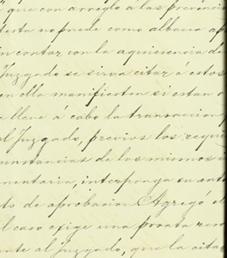 que con arreglo a las prevencio
testa no puede como albacea ap
in contar con la aquiescencia de
Juzgado se sirva citar á estos
en ella manifiesten si estan o
lleve á cabo la transaccion p
el Juzgado, previos los requi
cunstancias de los mismos a
mentaria, interponga su auto
to de aprobacion. Agregó e
l caso exige una pronta reso
nte al juzgado, que la citac